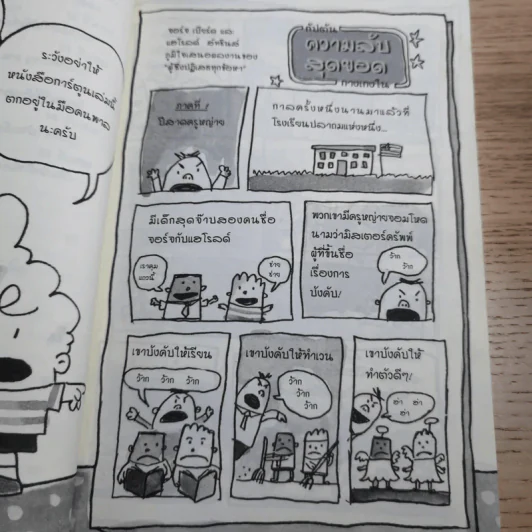 ระวังอย่าให้
หนังสือการ์ตูนเล่มนี้
ตกอยู่ในมือคนพาล
นะครับ
จอร์จ เบียร์ด และ
แฮโรลด์ ฮัทชินส์
ภูมิใจเสนอผลงานของ
"ผู้ซึ่งปฏิเสธทุกข้อหา"
กัปตัน
ความลับ
สุดยอด
กางเกงใน
ภาคที่ 1
ปีศาจครูหญ่าย
กาลครั้งหนึ่งนานมาแล้วที่
โรงเรียนปลาถมแห่งหนึ่ง...
มีเด็กสุดจ๊าบสองคนชื่อ
จอร์จกับแฮโรลด์
เราคุม
แถวนี้
ช่าย
ช่าย
พวกเขามีครูหญ่ายจอมโหด
นามว่ามิสเตอร์ครัพพ์
ผู้ที่ขึ้นชื่อ
เรื่องการ
บังคับ!
ว้าก
ว้าก
เขาบังคับให้เรียน
ว้าก ว้าก ว้าก
เขาบังคับให้ทำเวน
ว้าก
ว้าก
ว้าก
เขาบังคับให้
ทำตัวดีๆ!
ฮ่า ฮ่า
ฮ่า